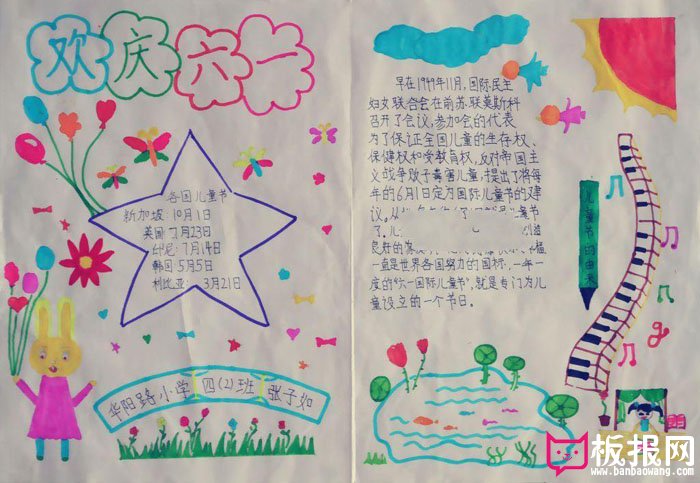 欢庆六一
各国儿童节
新加坡:10月1日
美国7月23日
印尼:7月14日
韩国5月5日
利比亚: 3月21日
华阳路小学 四(2)班 张子如
早在1949年11月,国际民主
妇女联合会在前苏联莫斯科
召开了会议,参加会的代表
为了保证全国儿童的生存权、
保健权和受教育权,反对帝国主
义战争贩子毒害儿童,提出了将每
年的6月1日定为国际儿童节的建
议。从 童节
了。儿
良好的 福
一直是世界各国努力的目标,一年一
度的“六一国际儿童节”,就是专门为儿
童设立的一个节日。
儿童节的由来
板报网
www.banbaowang.com